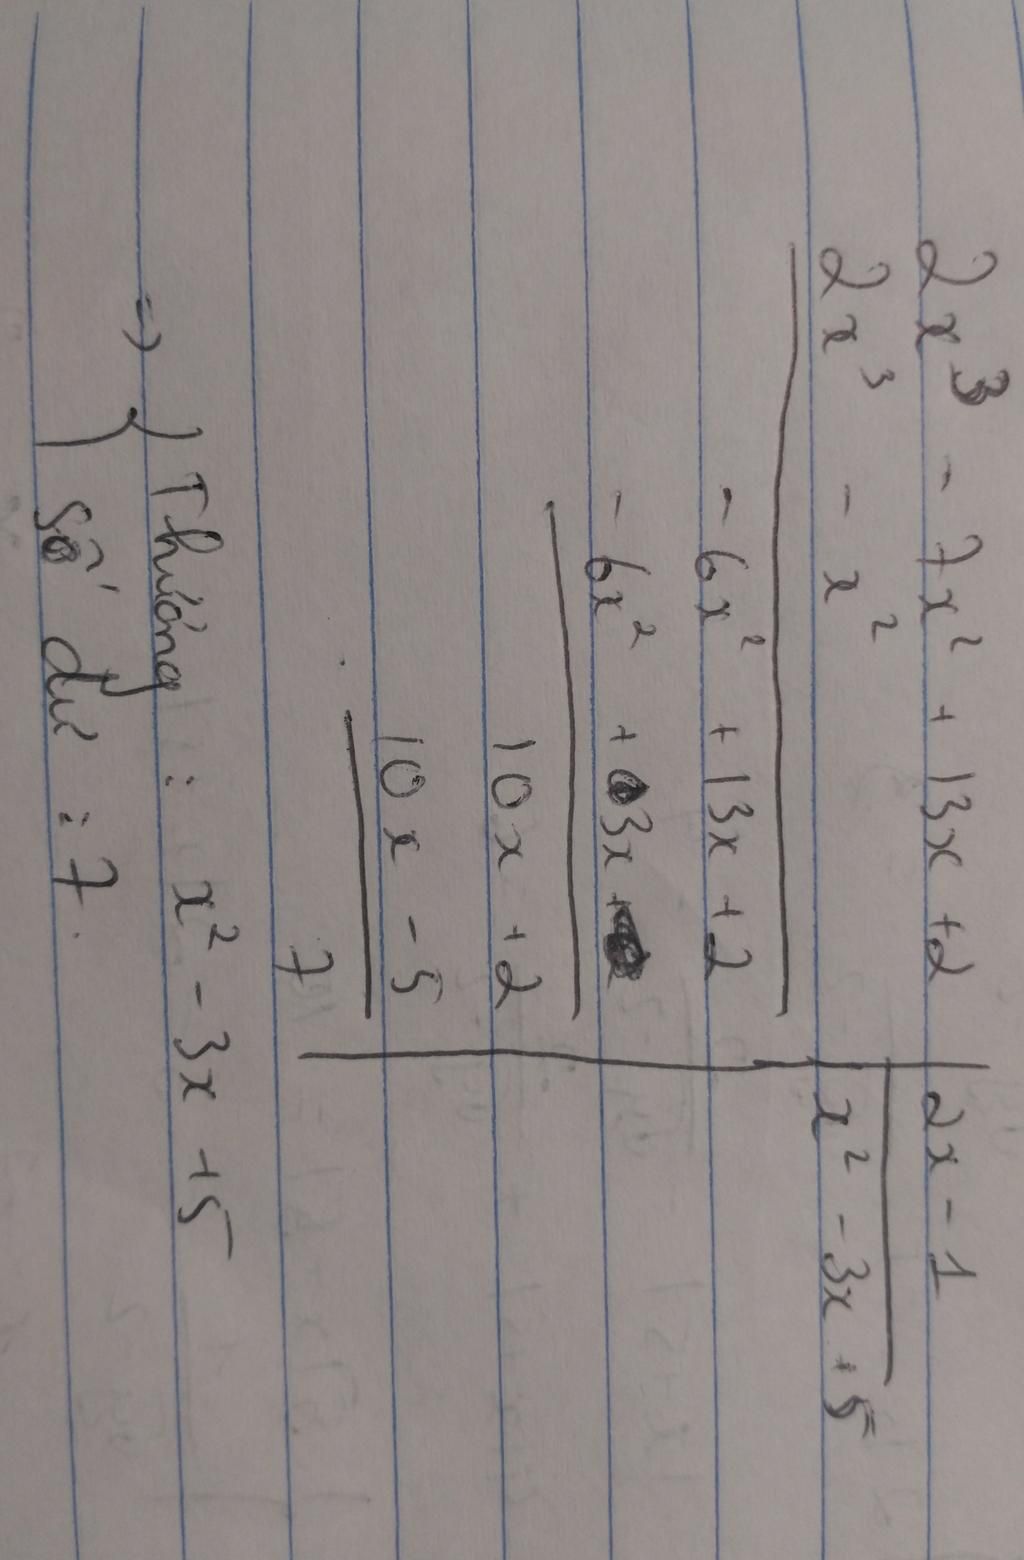 2x³ - 7x² + 13x + 2 | 2x - 1
2x³ - x² | x² - 3x + 5
- 6x² + 13x + 2
- 6x² + 3x
10x + 2
10x - 5
7
=> { Thương : x² - 3x + 5
số dư : 7.